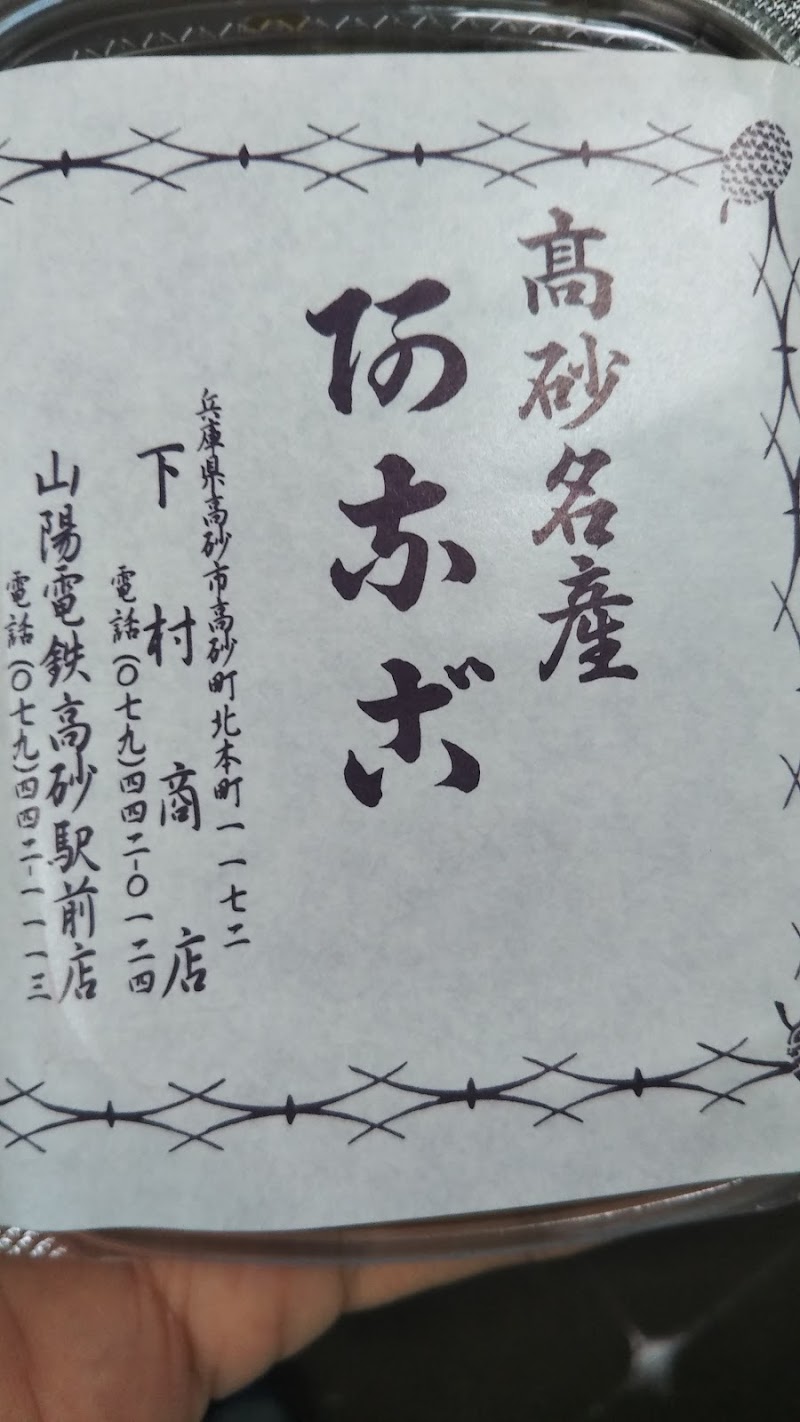 高砂名産
阿奈ゴ
兵庫県高砂市高砂町北本町一一七二
下村商店
電話(〇七九)四四二-〇一二四
山陽電鉄高砂駅前店
電話(〇七九)四四二-一一一三